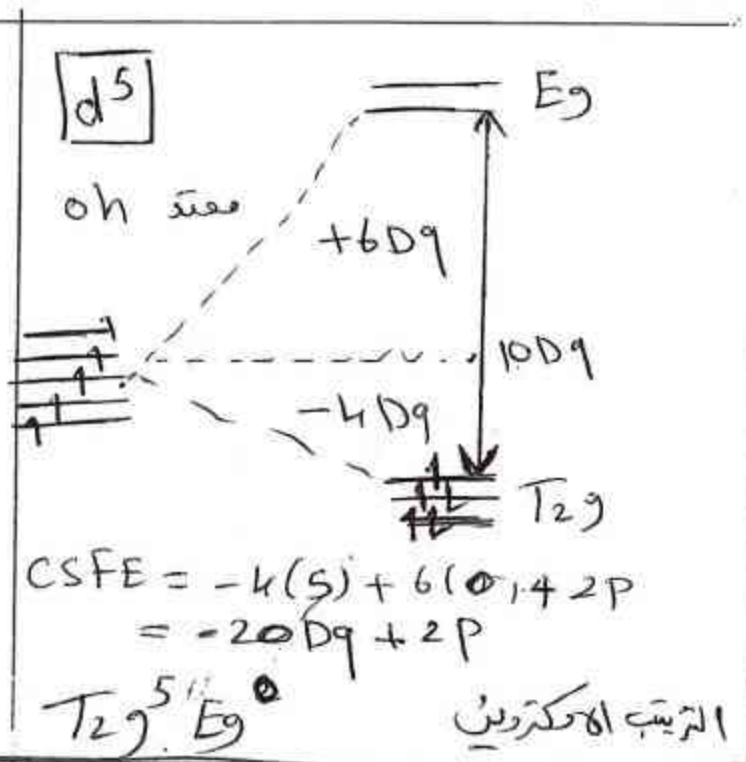 d⁵
Eg
معقد oh
+6Dq
10Dq
-4Dq
T₂g
CSFE = -4(5) + 6(0) + 2P
= -20Dq + 2P
T₂g⁵ Eg⁰
الترتيب الالكتروني